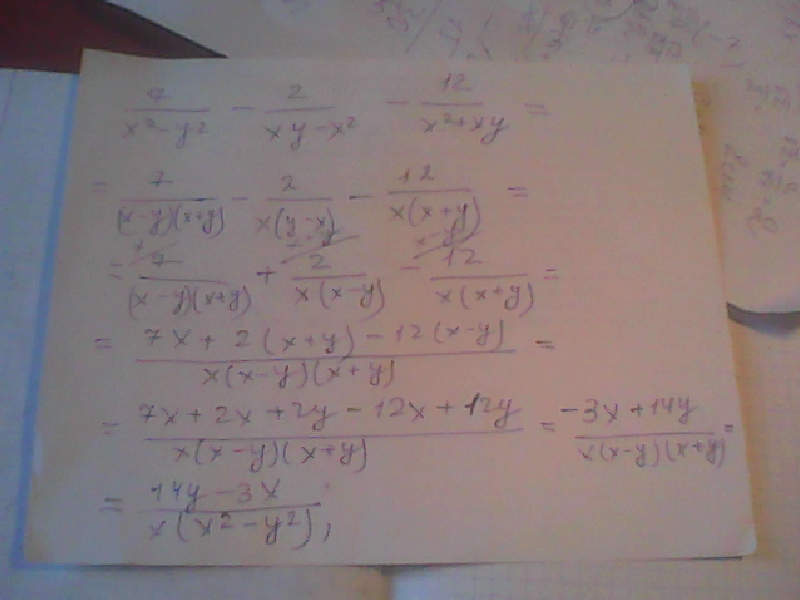 7/(x² - y²) - 2/(xy - x²) - 12/(x² + xy) =
= 7/((x - y)(x + y)) - 2/(x(y - x)) - 12/(x(x + y)) =
= 7/((x - y)(x + y)) + 2/(x(x - y)) - 12/(x(x + y)) =
= (7x + 2(x + y) - 12(x - y))/(x(x - y)(x + y)) =
= (7x + 2x + 2y - 12x + 12y)/(x(x - y)(x + y)) = (-3x + 14y)/(x(x - y)(x + y)) =
= (14y - 3x)/(x(x² - y²));